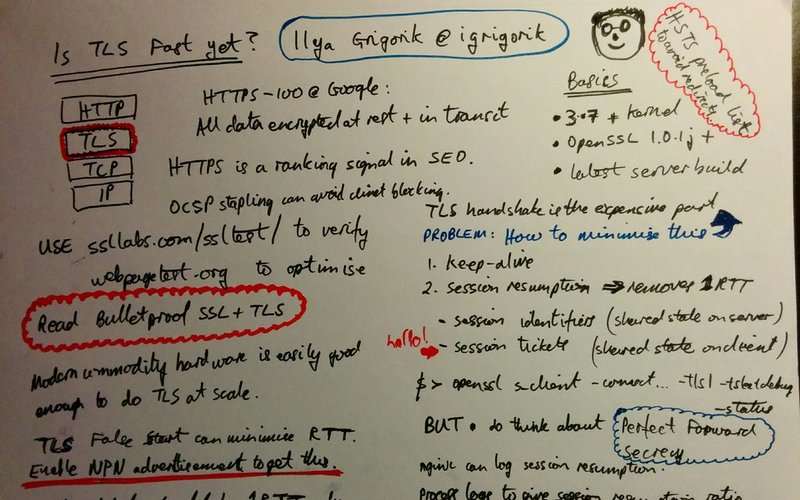 Is TLS Fast yet?
Ilya Grigorik @ igrigorik
HSTS preload list
to avoid redirects
HTTP
TLS
TCP
IP
HTTPS-100 @ Google:
All data encrypted at rest + in transit
HTTPS is a ranking signal in SEO.
OCSP stapling can avoid client blocking.
USE ssllabs.com/ssltest/ to verify
webpagetest.org to optimise
Read Bulletproof SSL + TLS
Modern commodity hardware is easily good
enough to do TLS at scale.
TLS False Start can minimise RTT.
Enable NPN advertisement to get this.
1RTT
Basics
• 3.7 + kernel
• OpenSSL 1.0.1j +
• latest server build
TLS handshake is the expensive part
PROBLEM: How to minimise this
1. Keep-alive
2. Session resumption ⇒ removes 1RTT
- Session identifiers (shared state on server)
hello!
- session tickets (shared state on client)
$> openssl s_client -connect... -tls1 -tlsextdebug
-status
BUT • do think about Perfect Forward
Secrecy
nginx can log session resumption.
Process logs to give session resumption ratio